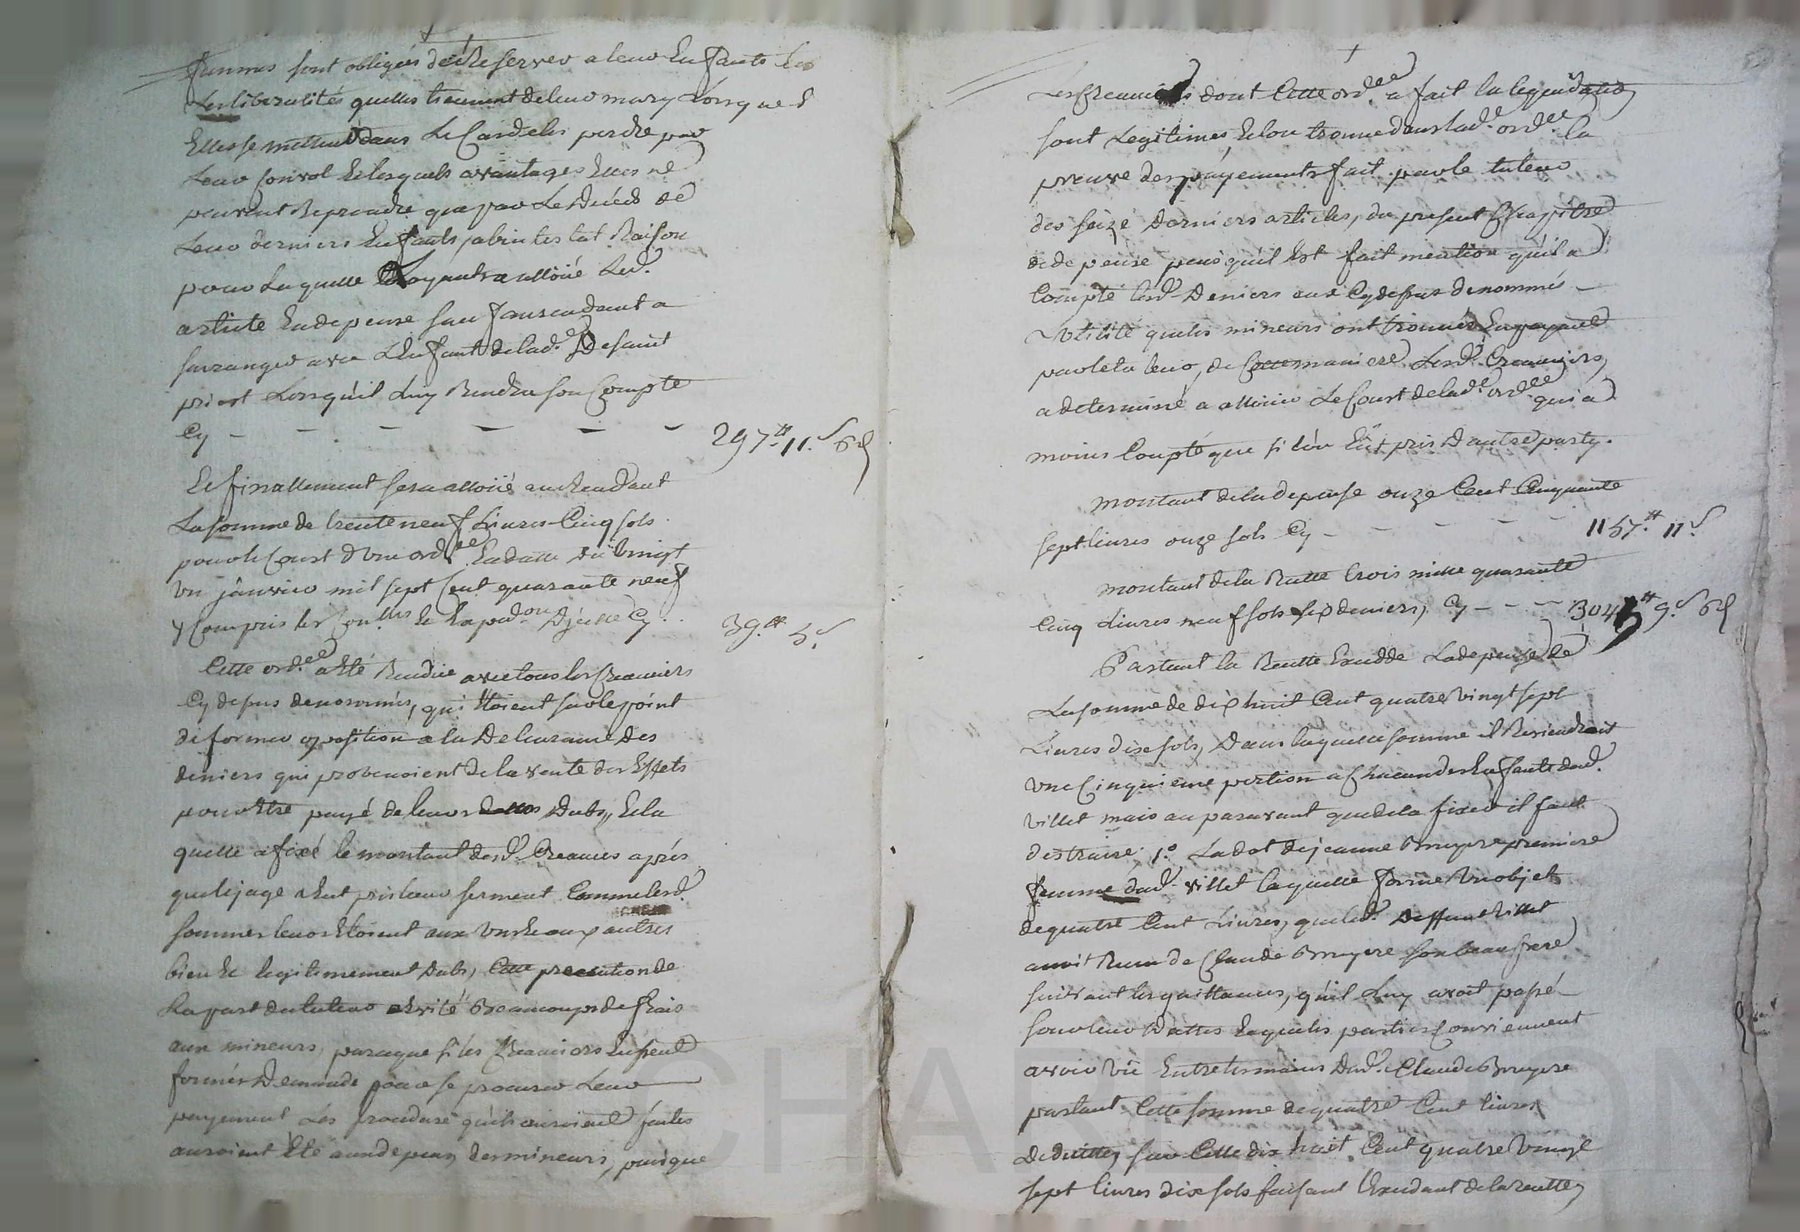 femmes sont obligées de Reserver a leur Enfants les
Les liberalités quelles tiennent de leur mary Lorsque
Elles se mettent dans Le Cas de les perdre par
Leur Convol Et lesquels avantages Elles ne
peuvent Reprendre que par Le Decéd de
Leur derniers Enfants, abintestat Raison
pour Laquelle Loyant a alloüé Led.
article En depense sauf au rendant a
sarranger avec L'Enfant de lad. Defaint
priest Lorsqu'il Luy Rendra son Compte
Cy - - - - - - 297# 11.s 6d
Et finallement sera alloüé au Rendant
La somme de trente neuf Livres Cinq sols
pour le Coust d'une ordee En datte du Vingt
un janvier mil sept Cent quarante neuf
y Compris les Con.lles Et la pnd.on Djcelle Cy . . 39.# 5.s
Cette ord.ee a Eté Rendüe avec tous les Creanciers
Cy depus denommés, qui Etoient sur le point
de former opposition a la Delivrance Des
deniers qui provenoient de la vente des Effets
pour Etre payé de leurs dettes Dubs, Et la
quelle a fixé le montant desd. Creances aprés
que le juge a Eut pris leur serment Comme lesd.
sommes leur Etoient aux Uns Et aux autres
bien Et legitimement dubs, Cette precaution de
La part du tuteur a Evité Beaucoups de frais
aux mineurs, parceque si les Creanciers Eussent
formés Demande pour se procurer Leur
payement Les procedure qu'ils auroient faites
auroient Eté aux depens des mineurs, puisque
Les Creances dont Cette ord.ee a fait la liquidation
sont Legitimes, Et lon trouve dans lad. ord.ee la
preuve des payements fait par le tuteur
des seize Derniers articles, du present Chapitre
de depense puis qu'il Est fait mention qu'il a
Compté lesd. Deniers aux Cy depus denommés
Utilité que les mineurs ont trouvés En payant
par le tuteur, de Cette maniere Lesd. Creanciers
a determiné a allouer Le Coust de lad. ord.ee qui a
moins Coupté que si l'on Eut pris D'autre party.
montant de la depense onze Cent Cinquante
sept livres onze sols Cy - - - - - 1157.# 11.s
montant de la Reette trois mille quarante
Cinq Livres neuf sols six deniers, Cy - - - 3045# 9.s 6d
Partant la Reette Excedde La depense de
La somme de dix huit Cent quatre Vingt sept
Livres dix sols, Dans laquelle somme il Reviendroit
une Cinquieme portion a Chacun des Enfants dud.
villet mais au paravant que de la fixer il faut
distraire 1.o La dot de jeanne Bruyere premiere
femme dud. villet laquelle forme Un objet
de quatre Cent Livres, que led. Deffunt Villet
avoit Recu de Claude Bruyere son beau frere
suivant les quittances, qu'il Luy avoit passé
sous leur Dattes lesquelles parties Conviennent
avoir vü Entre les mains Dud. Claude Bruyere
partant Cette somme de quatre Cent livres
Deduitte, sur Cette dix huit Cent quatre Vingt
sept livres dix sols faisant l'Excedant de la reette,
CHAR